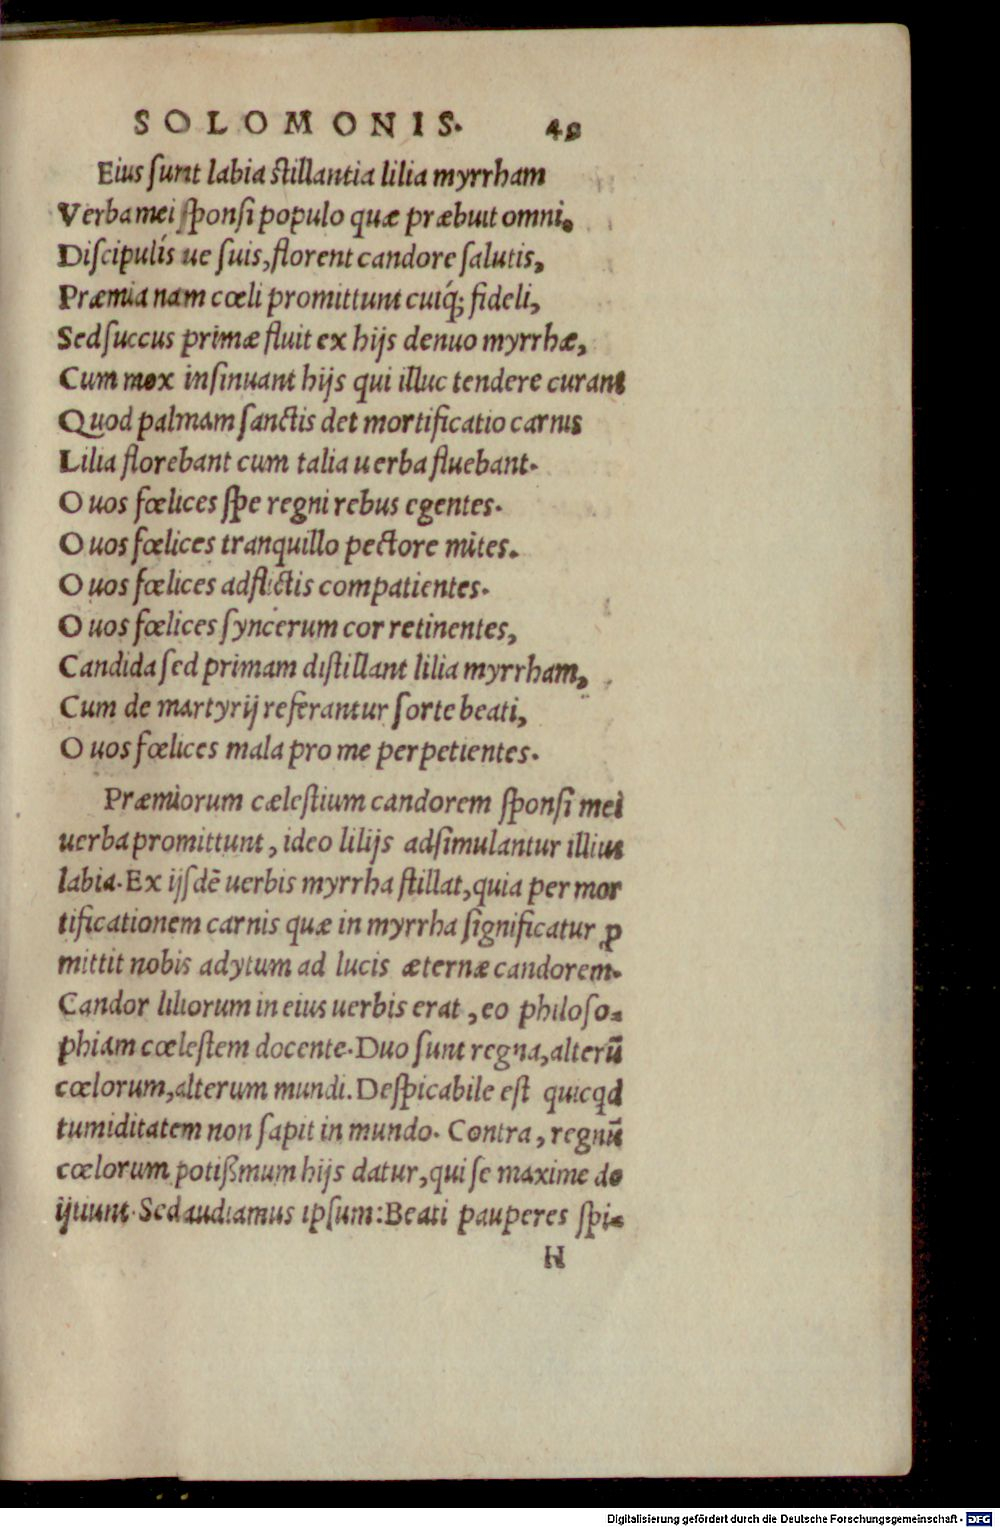 SOLOMONIS. 49
Eius sunt labia stillantia lilia myrrham
Verba mei sponsi populo quæ præbuit omni.
Discipulís ue suis, florent candore salutis,
Præmia nam cœli promittunt cuiq́; fideli,
Sed succus primæ fluit ex hijs denuo myrrhæ,
Cum mox insinuant hijs qui illuc tendere curant
Quod palmam sanctis det mortificatio carnis
Lilia florebant cum talia uerba fluebant.
O uos fœlices spe regni rebus egentes.
O uos fœlices tranquillo pectore mites.
O uos fœlices adflictis compatientes.
O uos fœlices syncerum cor retinentes,
Candida sed primam distillant lilia myrrham,
Cum de martyrij referantur sorte beati,
O uos fœlices mala pro me perpetientes.
Præmiorum cælestium candorem sponsi mei
uerba promittunt, ideo lilijs adsimulantur illius
labia. Ex ijsdē uerbis myrrha stillat, quia per mor
tificationem carnis quæ in myrrha significatur ꝓ
mittit nobis adytum ad lucis æternæ candorem.
Candor liliorum in eius uerbis erat, eo philoso-
phiam cœlestem docente. Duo sunt regna, alterū
cœlorum, alterum mundi. Despicabile est quicqd
tumiditatem non sapit in mundo. Contra, regnū
cœlorum potißmum hijs datur, qui se maxime de
ijciunt. Sed audiamus ipsum: Beati pauperes spi-
H
Digitalisierung gefördert durch die Deutsche Forschungsgemeinschaft - DFG